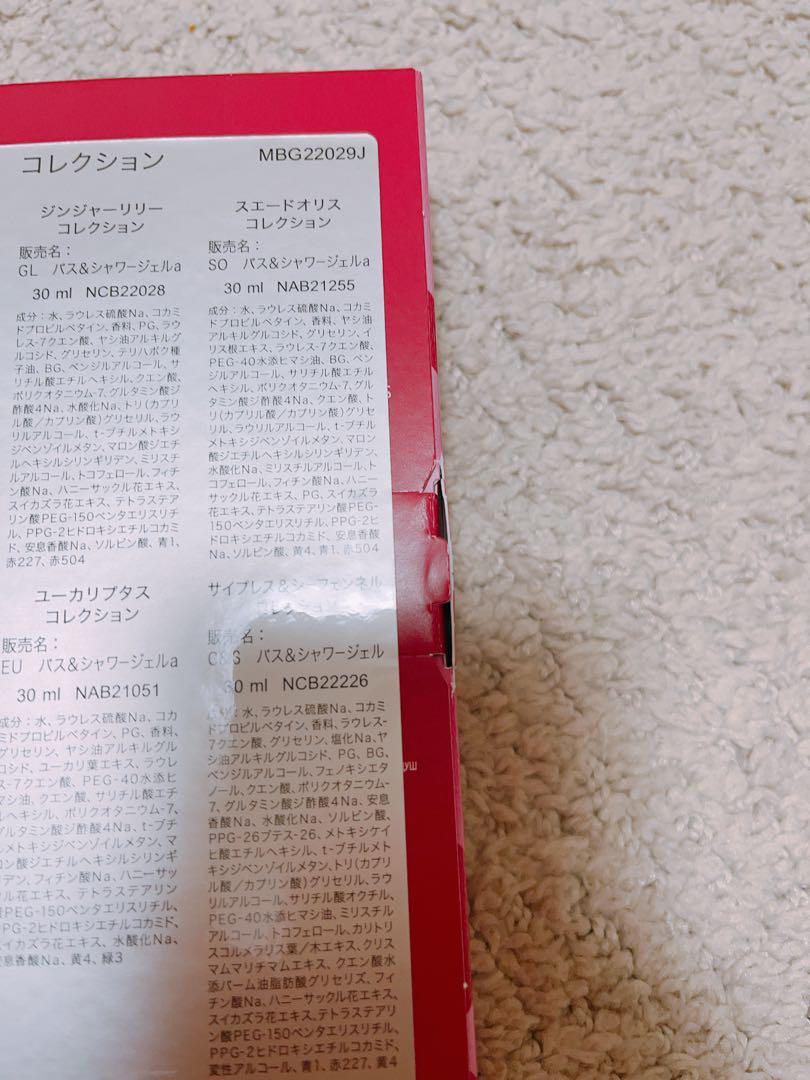 コレクション
MBG22029J
ジンジャーリリー
コレクション
販売名：
GL　バス&シャワージェルa
30 ml NCB22028
成分：水、ラウレス硫酸Na、コカミ
ドプロピルベタイン、香料、PG、ラウ
レス-7クエン酸、ヤシ油アルキルグ
ルコシド、グリセリン、テリハボク種
子油、BG、ベンジルアルコール、サ
リチル酸エチルヘキシル、クエン酸、
ポリクオタニウム-7、グルタミン酸ジ
酢酸4Na、水酸化Na、トリ(カプリ
ル酸／カプリン酸)グリセリル、ラウ
リルアルコール、t-ブチルメトキシ
ジベンゾイルメタン、マロン酸ジエチ
ルヘキシルシリンギリデン、ミリスチ
ルアルコール、トコフェロール、フィチ
ン酸Na、ハニーサックル花エキス、
スイカズラ花エキス、テトラステアリ
ン酸PEG-150ペンタエリスリチ
ル、PPG-2ヒドロキシエチルコカミ
ド、安息香酸Na、ソルビン酸、青1、
赤227、赤504
スエードオリス
コレクション
販売名：
SO　バス&シャワージェルa
30 ml NAB21255
成分：水、ラウレス硫酸Na、コカミ
ドプロピルベタイン、香料、ヤシ油
アルキルグルコシド、グリセリン、イ
リス根エキス、ラウレス-7クエン酸、
PEG-40水添ヒマシ油、BG、ベン
ジルアルコール、サリチル酸エチル
ヘキシル、ポリクオタニウム-7、グル
タミン酸ジ酢酸4Na、クエン酸、ト
リ(カプリル酸／カプリン酸)グリセ
リル、ラウリルアルコール、t-ブチル
メトキシジベンゾイルメタン、マロン
酸ジエチルヘキシルシリンギリデン、
水酸化Na、ミリスチルアルコール、ト
コフェロール、フィチン酸Na、ハニ
ーサックル花エキス、PG、スイカズラ
花エキス、テトラステアリン酸PEG-
150ペンタエリスリチル、PPG-2ヒ
ドロキシエチルコカミド、安息香酸
Na、ソルビン酸、黄4、青1、赤504
ユーカリプタス
コレクション
販売名：
EU　バス&シャワージェルa
30 ml NAB21051
成分：水、ラウレス硫酸Na、コカ
ミドプロピルベタイン、PG、香料、
グリセリン、ヤシ油アルキルグル
コシド、ユーカリ葉エキス、ラウレ
ス-7クエン酸、PEG-40水添ヒ
マシ油、クエン酸、サリチル酸エチ
ルヘキシル、ポリクオタニウム-7、
グルタミン酸ジ酢酸4Na、t-ブチ
ルメトキシジベンゾイルメタン、マ
ロン酸ジエチルヘキシルシリンギ
リデン、フィチン酸Na、ハニーサッ
クル花エキス、テトラステアリン
酸PEG-150ペンタエリスリチル、
PPG-2ヒドロキシエチルコカミド、
スイカズラ花エキス、水酸化Na、
安息香酸Na、黄4、緑3
サイプレス&シーフェンネル
コレクション
販売名：
C&S　バス&シャワージェル
30 ml NCB22226
成分：水、ラウレス硫酸Na、コカミ
ドプロピルベタイン、香料、ラウレス-
7クエン酸、グリセリン、塩化Na、ヤ
シ油アルキルグルコシド、PG、BG、
ベンジルアルコール、フェノキシエタ
ノール、クエン酸、ポリクオタニウム-
7、グルタミン酸ジ酢酸4Na、安息
香酸Na、水酸化Na、ソルビン酸、
PPG-26ブテス-26、メトキシケイ
ヒ酸エチルヘキシル、t-ブチルメト
キシジベンゾイルメタン、トリ(カプリ
ル酸／カプリン酸)グリセリル、ラウ
リルアルコール、サリチル酸オクチル、
PEG-40水添ヒマシ油、ミリスチル
アルコール、トコフェロール、カリトリ
スコルメラリス葉／木エキス、クリス
マムマリチマムエキス、クエン酸水
添パーム油脂肪酸グリセリズ、フィ
チン酸Na、ハニーサックル花エキス、
スイカズラ花エキス、テトラステアリ
ン酸PEG-150ペンタエリスリチル、
PPG-2ヒドロキシエチルコカミド、
変性アルコール、青1、赤227、黄4